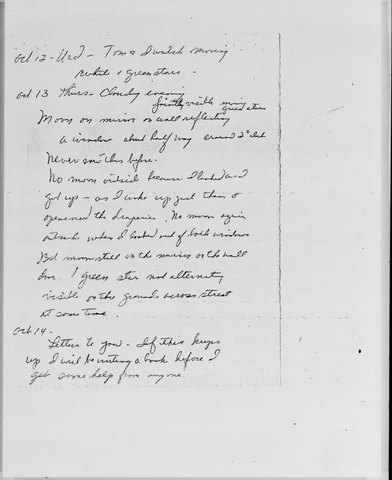 Oct 12 - Wed - Tom & I watch moving
white & green stars -
Oct 13 Thurs - Cloudy evening
faintly visible moving green stars
Moon on mirror on wall reflecting
a window about half way around 2 o'clock
Never saw this before.
No moon outside because I looked as I
got up - as I woke up just then &
opened the draperies. No moon again
outside when I looked out of both windows
But moon still on the mirror on the wall
1 green star not alternating
visible on the ground across street
at same time.
Oct 14 -
Letter to you - If this keeps
up I will be writing a book before I
get some help from anyone.